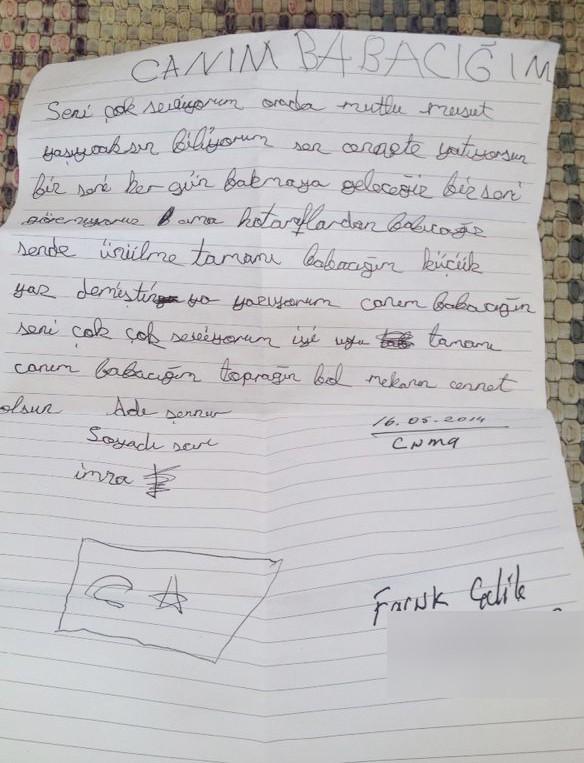 CANIM BABACIĞIM
Seni çok seviyorum orada mutlu mesut
yaşıycaksın biliyorum sen cennete yatıyorsun
biz seni her gün bakmaya geleceğiz biz seni
göremiyoruz ama fotoraflardan bakıcağız
sende üzülme tamamı babacığım küçük
yaz demiştin ya yazıyorum canım babacığım
seni çok çok seviyorum iyi uyu tamamı
canım babacığım toprağın bol mekanın cennet
olsun Adı şennur
Soyadı
imza
16.05.2014
CUMA
Faruk Çelik